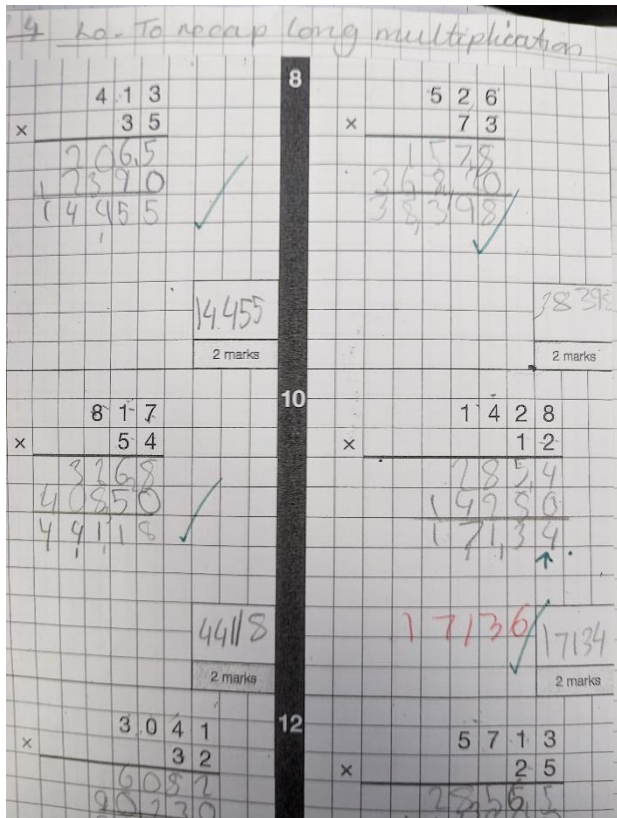 4 Lo - To recap long multiplication
4 1 3
× 3 5
2 0 6 5
1 2 3 9 0
1 4 4 5 5
14455
2 marks
8
5 2 6
× 7 3
1 5 7 8
3 6 8 2 0
3 8 3 9 8
38398
2 marks
8 1 7
× 5 4
3 2 6 8
4 0 8 5 0
4 4 1 1 8
44118
2 marks
10
1 4 2 8
× 1 2
2 8 5 4
1 4 2 8 0
1 7 1 3 4
17136
17134
2 marks
3 0 4 1
× 3 2
6 0 8 2
12
5 7 1 3
× 2 5
2 8 5 6 5